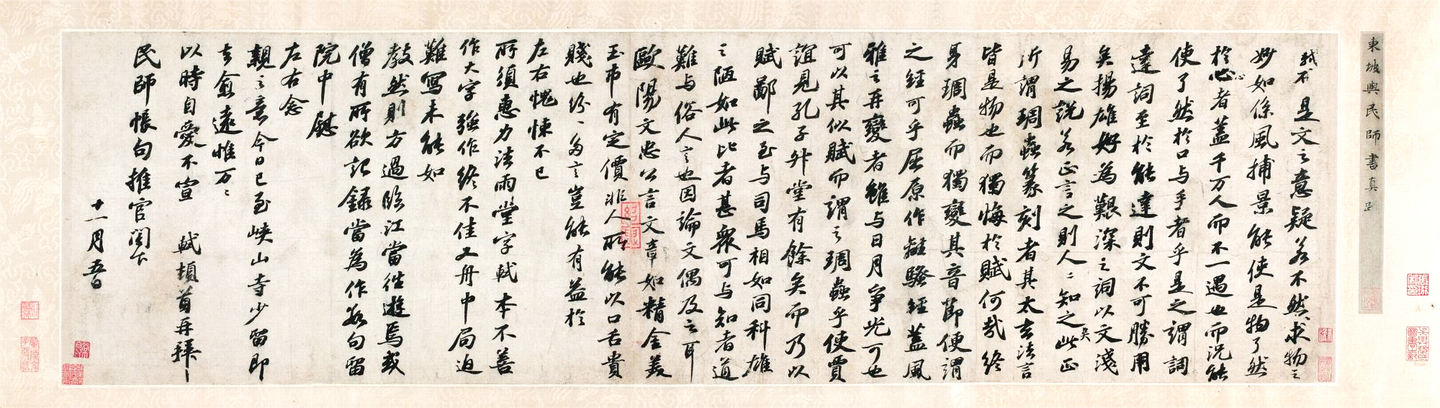 東坡與民師書真
是文之意疑若不然求物之
妙如係風捕景能使是物了然
於心者蓋千万人而不一遇也而況能
使了然於口与手者乎是之謂詞
達詞至於能達則文不可勝用
矣揚雄好為艱深之詞以文淺
易之說若正言之則人〻知之矣此正
所謂琱蟲篆刻者其太玄法言
皆是物也而獨悔於賦何哉終
身琱蟲而獨變其音節便謂
之經可乎屈原作離騷經蓋風
雅之再變者雖与日月爭光可也
可以其似賦而謂之琱蟲乎使賈
誼見孔子升堂有餘矣而乃以
賦鄙之至与司馬相如同科雄
之陋如此比者甚衆可与知者道
難与俗人言也因論文偶及之耳
歐陽文忠公言文章如精金美
玉市有定價非人所能以口舌貴
賤也紛〻多言豈能有益於
左右愧悚不已
所須惠力法雨堂字軾本不善
作大字強作終不佳又舟中局迫
難寫未能如
教然則方過臨江當往遊焉或
僧有所欲記録當為作數句留
院中慰
左右念
親之意今日已至峽山寺少留即
去愈遠惟万〻
以時自愛不宣 軾頓首再拜
民師帳句推官閣下
十一月五日